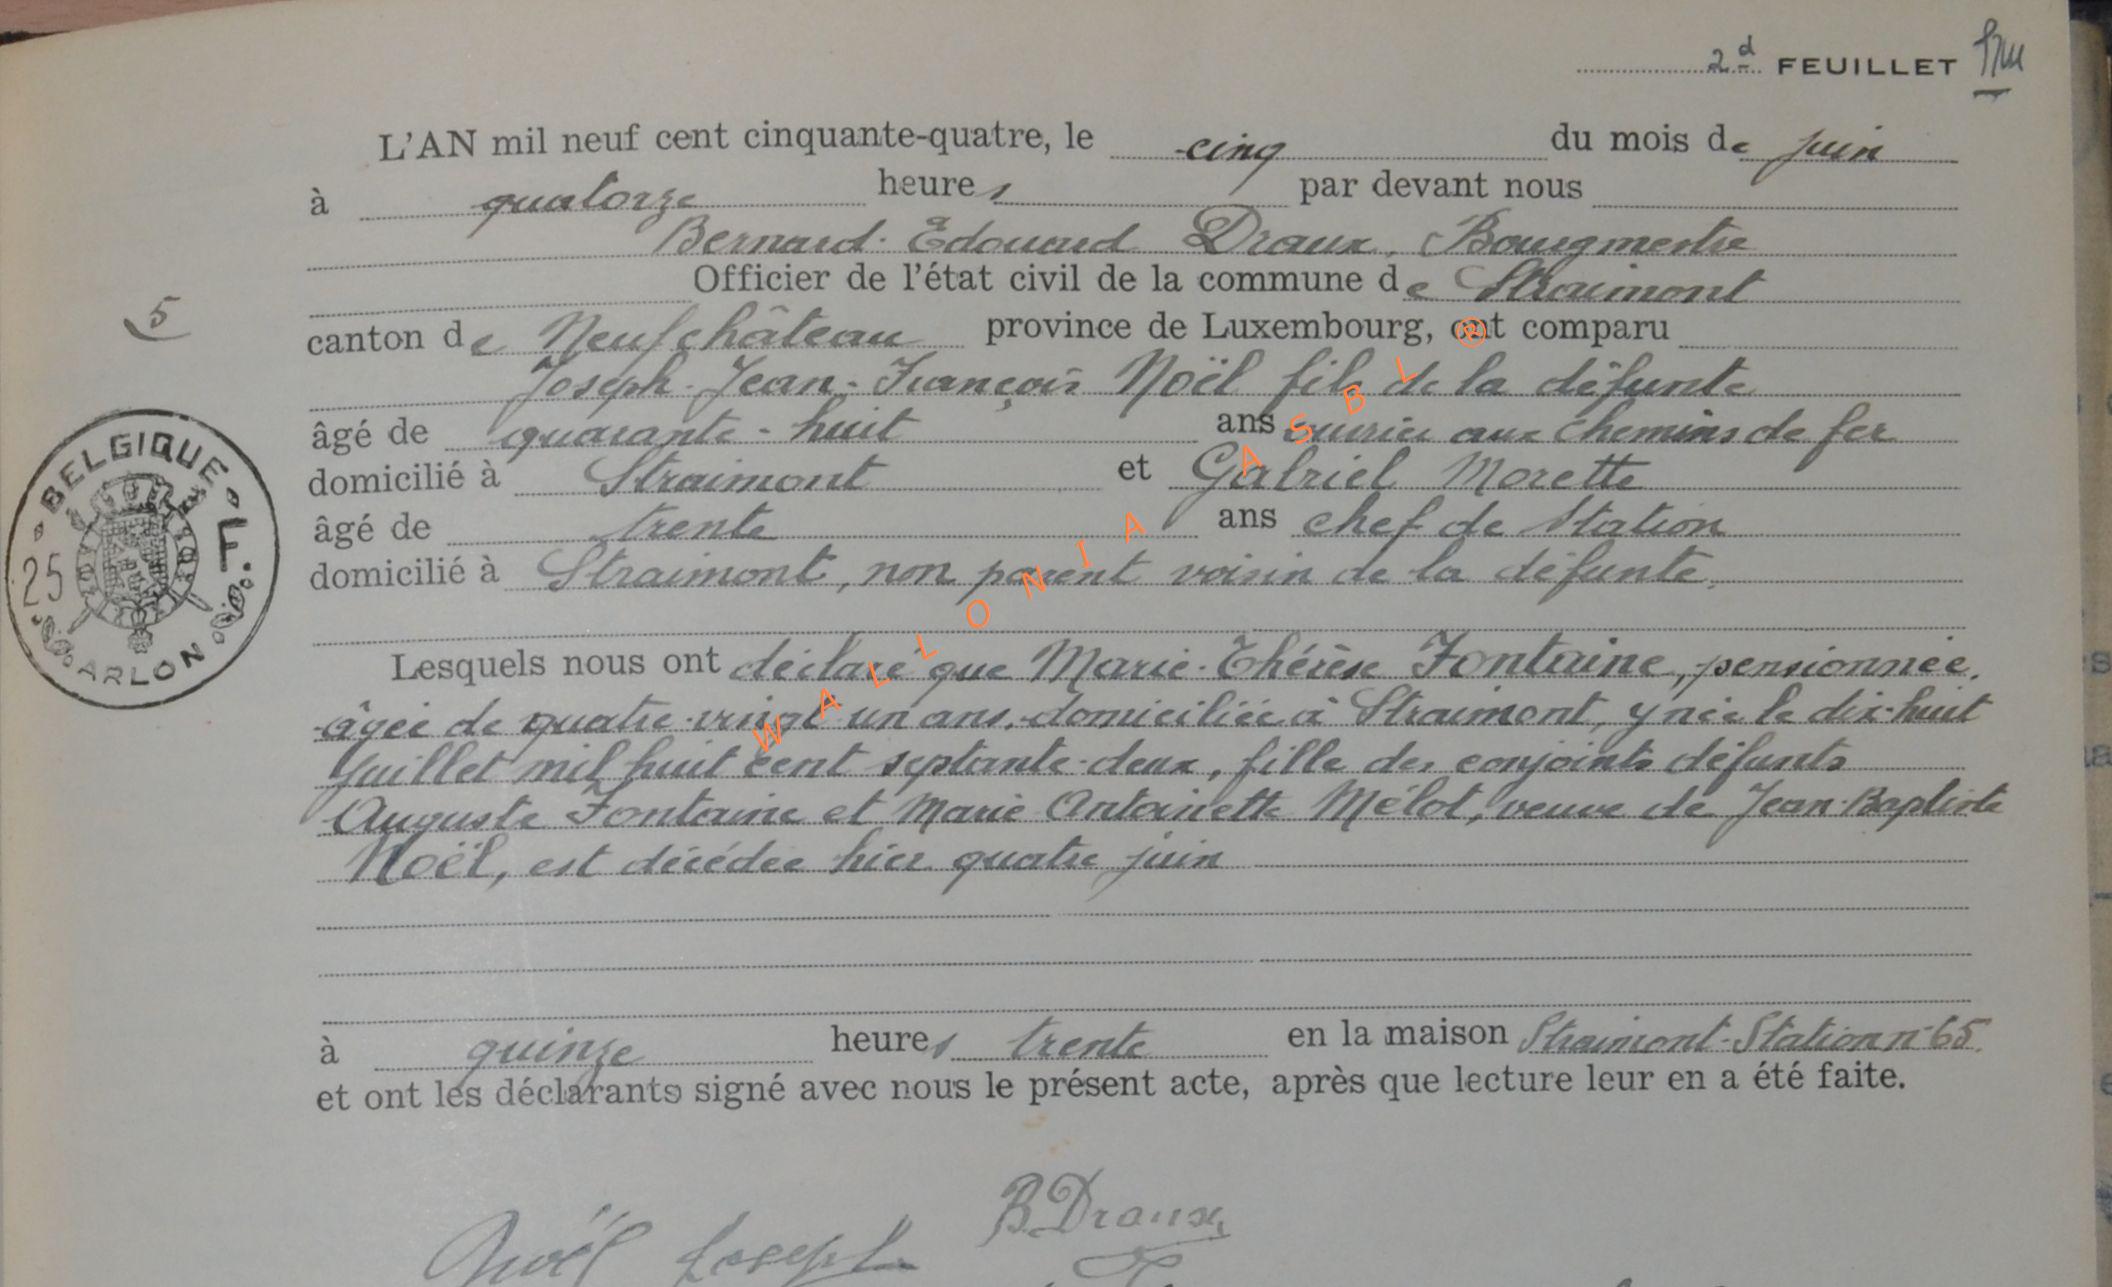 2d FEUILLET
L'AN mil neuf cent cinquante-quatre, le cinq du mois de juin
à quatorze heures par devant nous
Bernard-Edouard Draux, Bourgmestre
Officier de l'état civil de la commune de Straimont
5
canton de Neufchâteau province de Luxembourg, ont comparu
Joseph-Jean-François Noël fils de la défunte
âgé de quarante-huit ans ouvrier aux chemins de fer
domicilié à Straimont et Gabriel Morette
âgé de trente ans chef de Station
domicilié à Straimont, non parent voisin de la défunte.
BELGIQUE
25 F.
ARLON
Lesquels nous ont déclaré que Marie-Thérèse Fontaine, pensionnée,
âgée de quatre-vingt un ans, domiciliée à Straimont, y née le dix-huit
juillet mil huit cent septante-deux, fille des conjoints défunts
Auguste Fontaine et Marie Antoinette Mélot, veuve de Jean-Baptiste
Noël, est décédée hier quatre juin
à quinze heures trente en la maison Straimont-Station n°65.
et ont les déclarants signé avec nous le présent acte, après que lecture leur en a été faite.
B. Draux
Noël Joseph
WALLONIA ASBL ®